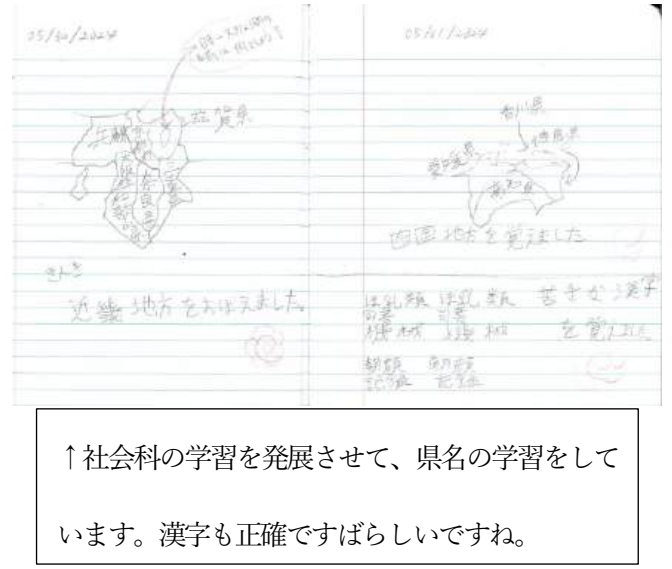 05/30/2024
滋賀県
兵庫
京都
大阪
奈良
三重
和歌山
きんき
近畿地方をおぼえました。
香川県
徳島県
愛媛県
高知県
四国地方を覚えました
ほ乳類 ほ乳類 苦手な漢字
機材 機材 を覚えました
朝顔 朝顔
記録 記録
↑社会科の学習を発展させて、県名の学習をして
います。漢字も正確ですばらしいですね。